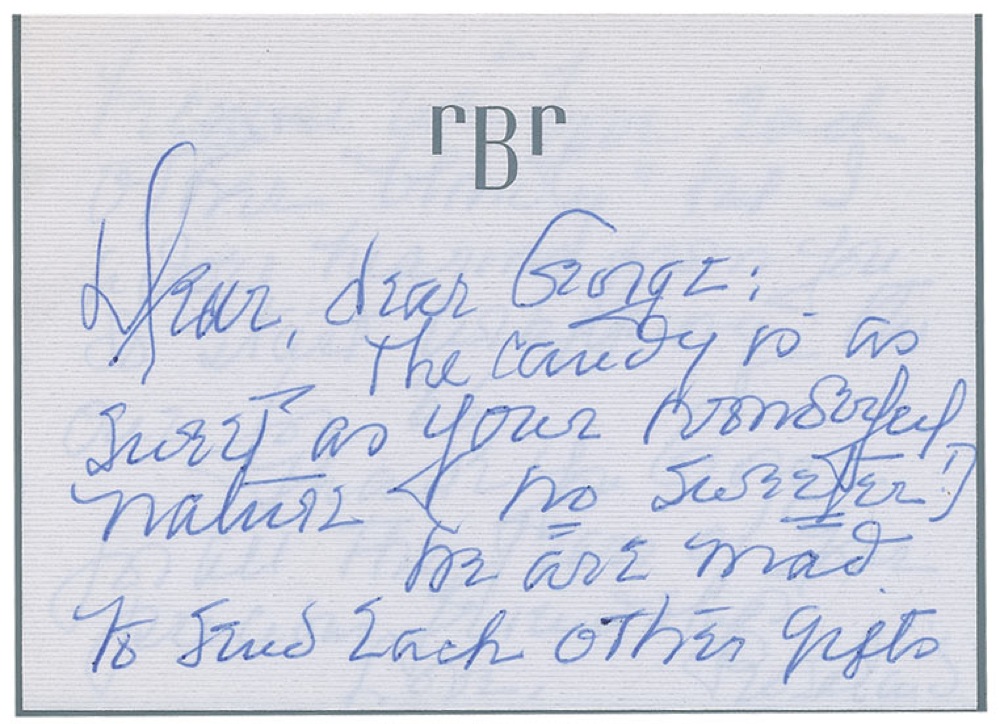 rBr
Dear, dear George:
The candy is as
sweet as your wonderful
nature (no sweeter!)
We are mad
to send each other gifts